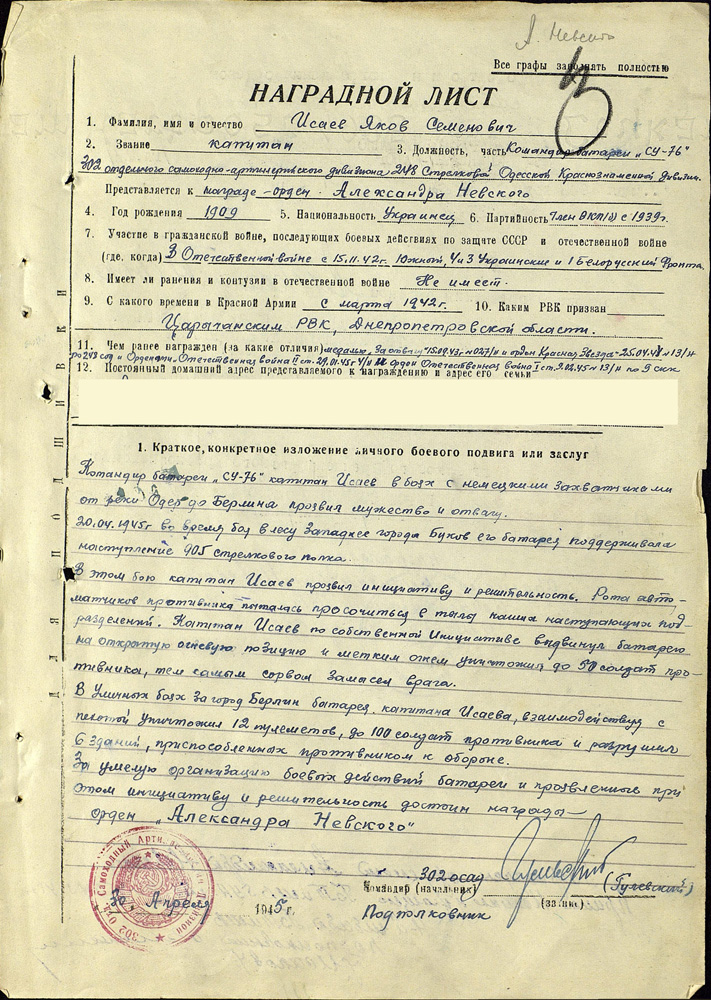 А. Невского
Все графы заполнять полностью
НАГРАДНОЙ ЛИСТ
1. Фамилия, имя и отчество Исаев Яков Семенович
2. Звание капитан 3. Должность, часть Командир батареи „СУ-76"
302 отдельного самоходно-артиллерийского дивизиона 248 Стрелковой Одесской Краснознаменной дивизии.
Представляется к награде-орден. Александра Невского
4. Год рождения 1909 5. Национальность Украинец 6. Партийность Член ВКП(б) с 1939г.
7. Участие в гражданской войне, последующих боевых действиях по защите СССР и отечественной войне
(где, когда) В Отечественной войне с 15.11.42г. Южный, 4 и 3 Украинские и 1 Белорусский Фронта.
8. Имеет ли ранения и контузии в отечественной войне Не имеет.
9. С какого времени в Красной Армии с марта 1942г. 10. Каким РВК призван
Царычанским РВК, Днепропетровской области.
11. Чем ранее награжден (за какие отличия) медалью „За отвагу" 15.09.43г. №027/н и орден Красная Звезда-25.04.44 №13/н
по 248 сд и Орденами „Отечественная война II ст. 29.01.45г 4/н и орден Отечественная война I ст. 2.02.45 №13/н по 9 скк
12. Постоянный домашний адрес представляемого к награждению и адрес его семьи
ДЛЯ ПОДШИВКИ
1. Краткое, конкретное изложение личного боевого подвига или заслуг
Командир батареи „СУ-76" капитан Исаев в боях с немецкими захватчиками
от реки Одер до Берлина проявил мужество и отвагу.
20.04.1945г во время боя в лесу Западнее города Буков его батарея поддерживала
наступление 905 стрелкового полка.
В этом бою капитан Исаев проявил инициативу и решительность. Рота авто-
матчиков противника пыталась просочиться в тылы наших наступающих под-
разделений. Капитан Исаев по собственной Инициативе выдвинул батарею
на открытую огневую позицию и метким огнем уничтожил до 50 солдат про-
тивника, тем самым сорвал Замысел врага.
В Уличных боях За город Берлин батарея капитана Исаева, взаимодействуя с
пехотой Уничтожил 12 пулеметов, до 100 солдат противника и разрушил
6 Зданий, приспособленных противником к обороне.
За умелую организацию боевых действий батареи и проявленные при
этом инициативу и решительность достоин награды—
орден „Александра Невского"
302 Отд. Самоходный Арт. Дивизион
30 Апреля 1945г.
Командир (начальник) 302 осад (Гулевский)
(звание)
Подполковник